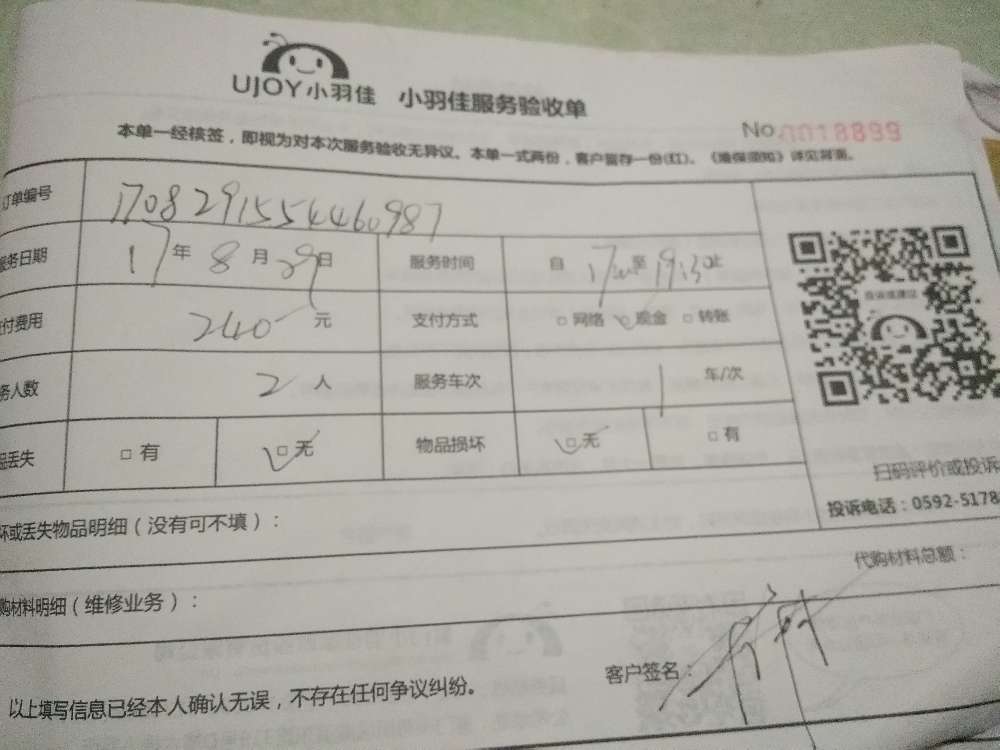 UJOY小羽佳 小羽佳服务验收单
No.0018899
本单一经核签，即视为对本次服务验收无异议。本单一式两份，客户留存一份(红)。《维保须知》详见背面。
订单编号 1708291554460987
服务日期 17年8月29日 服务时间 自 至 19:30止
付费用 240元 支付方式 □网络 □现金 □转账
务人数 2人 服务车次 1 车/次
丢失 □有 □无 物品损坏 □无 □有
扫码评价或投诉
坏或丢失物品明细（没有可不填）：
投诉电话：0592-5178
代购材料总额：
购材料明细（维修业务）：
客户签名：
以上填写信息已经本人确认无误，不存在任何争议纠纷。